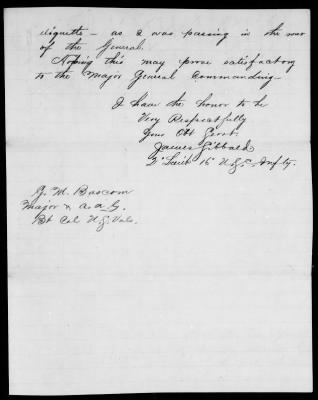 etiquette — as I was passing in the rear
of the General.
Hoping this may prove satisfactory
to the Major General Commanding —
I have the honor to be
Very Respectfully
Your Obt Servt.
James Gibbard
2" Lieut 16" U.S.C. Infty.
G. M. Bascom
Major & A.A.G.
Bt Col U.S. Vols.